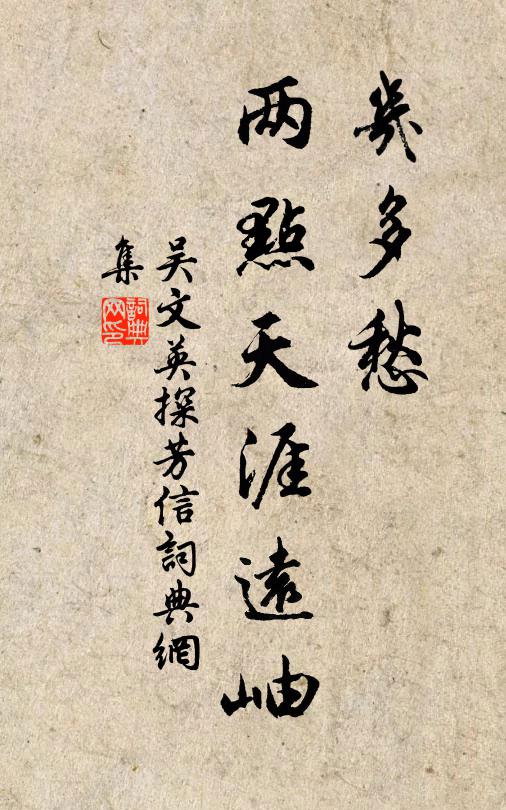 幾多愁
两點天涯遠岫
吴文英探芳信詞典網
集
詞典
网印